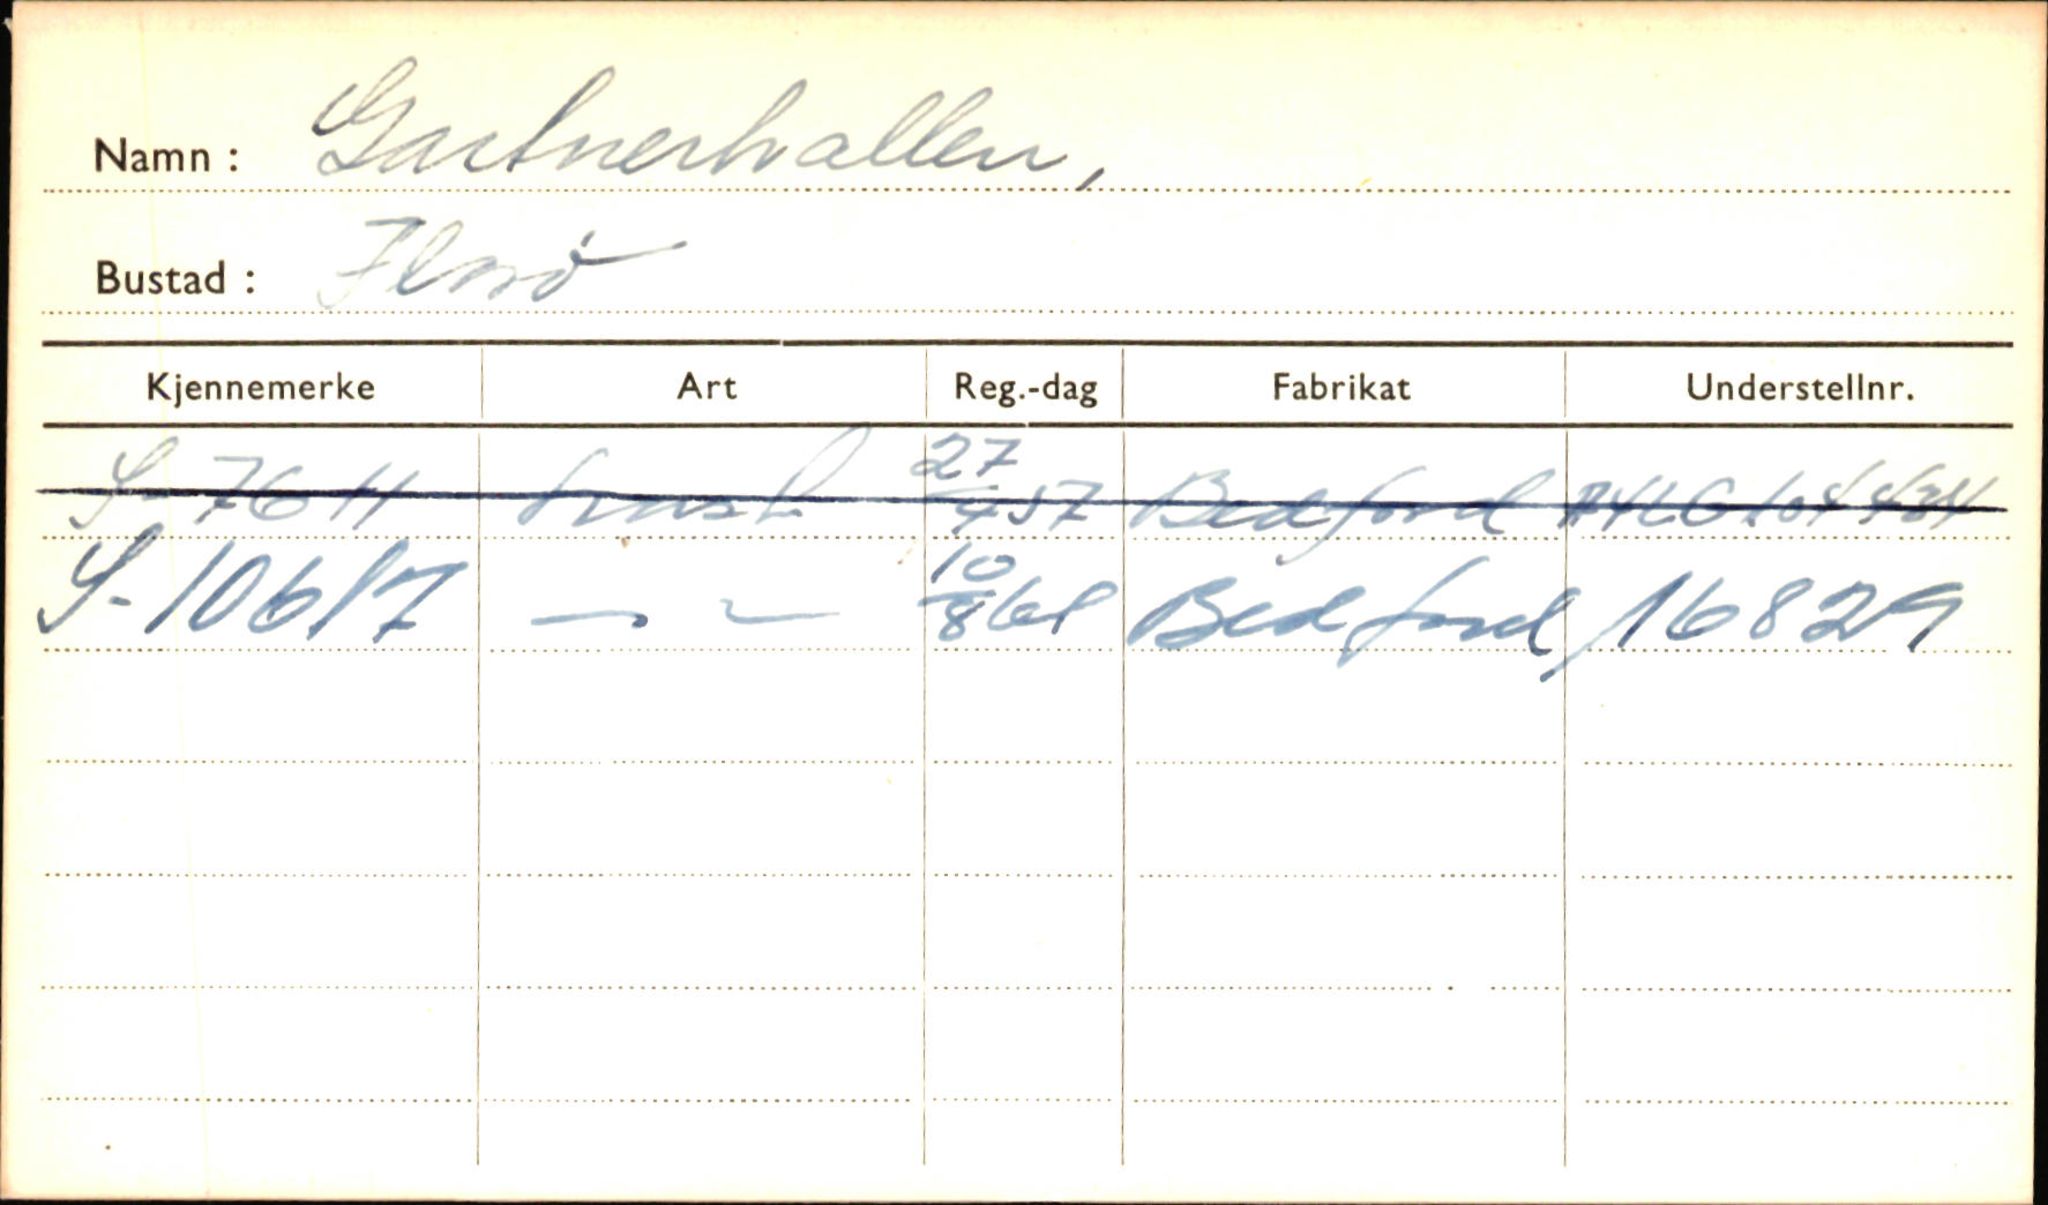 Namn : Gartnerhallen,
Bustad : Florø
Kjennemerke Art Reg.-dag Fabrikat Understellnr.
S-7611 27/4 57 Bedford
S-10617 — ~ 10/8 61 Bedford, 16829